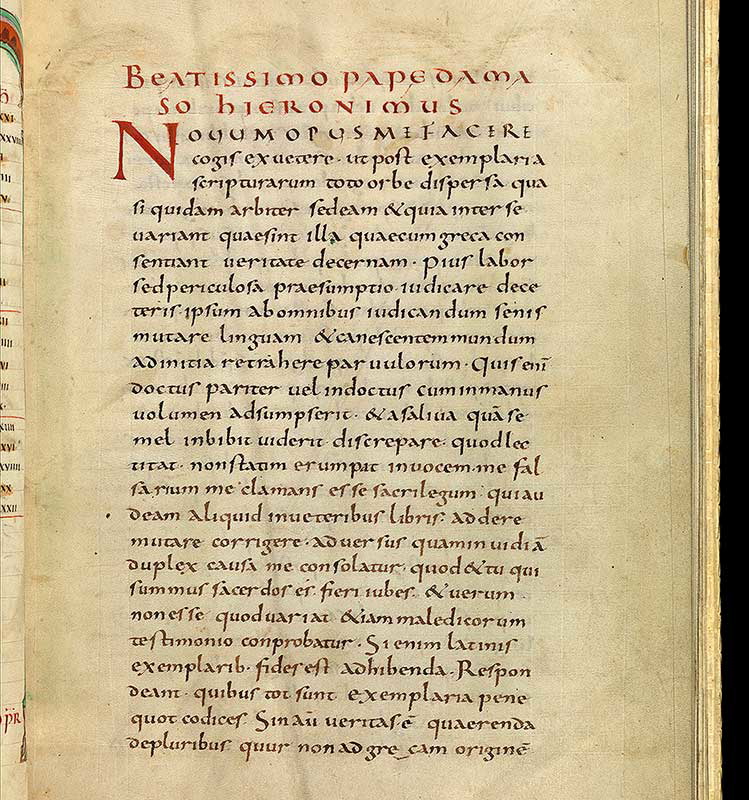 BEATISSIMO PAPE DAMA
SO HIERONIMUS
NOUUM OPUS ME FACERE
cogis ex uetere · ut post exemplaria
scripturarum toto orbe dispersa qua
si quidam arbiter sedeam & quia inter se
uariant quae sint illa quae cum greca con
sentiant ueritate decernam · Pius labor
sed periculosa praesumptio iudicare dece
teris · ipsum ab omnibus iudicandum senis
mutare linguam & canescentem mundum
ad initia retrahere paruulorum · Quis enī
doctus pariter uel indoctus cum in manus
uolumen adsumpserit · & a saliua quā se
mel inbibit uiderit discrepare · quod lec
titat · non statim erumpat in uocem · me fal
sarium me clamans esse sacrilegum qui au
deam aliquid in ueteribus libris addere
mutare corrigere · aduersus quam inuidiā
duplex causa me consolatur · quod & tu qui
summus sacerdos es fieri iubes & uerum
non esse quod uariat & iam maledicorum
testimonio conprobatur · Si enim latinis
exemplarib· fides est adhibenda · Respon
deant · quibus tot sunt exemplaria pene
quot codices Sin aū ueritas ē quaerenda
de pluribus quur non ad grecam originē